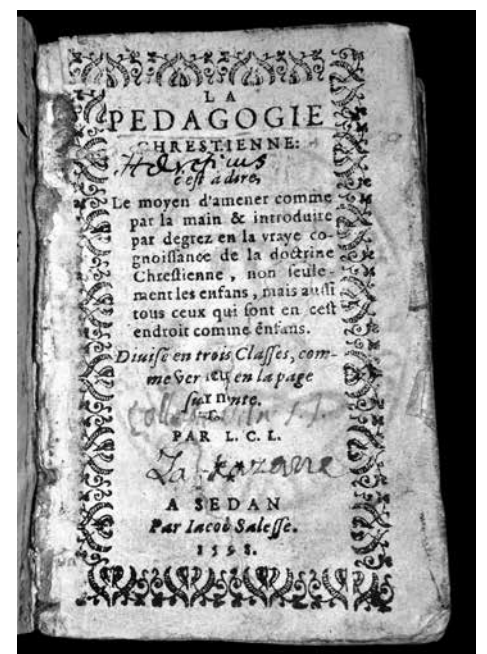 LA
PEDAGOGIE
CHRESTIENNE:
c'est à dire,
Le moyen d'amener comme
par la main & introduire
par degrez en la vraye co-
gnoiſſance de la doctrine
Chreſtienne, non ſeule-
ment les enfans, mais auſſi
tous ceux qui ſont en ceſt
endroit comme enfans.
Diuiſe en trois Claſſes, com-
me verrez en la page
PAR L. C. L.
A SEDAN
Par Iacob Saleſſe.
1598.